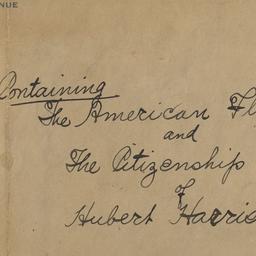 NUE
Containing
The American Fl
and
The Citizenship
of
Hubert Harris